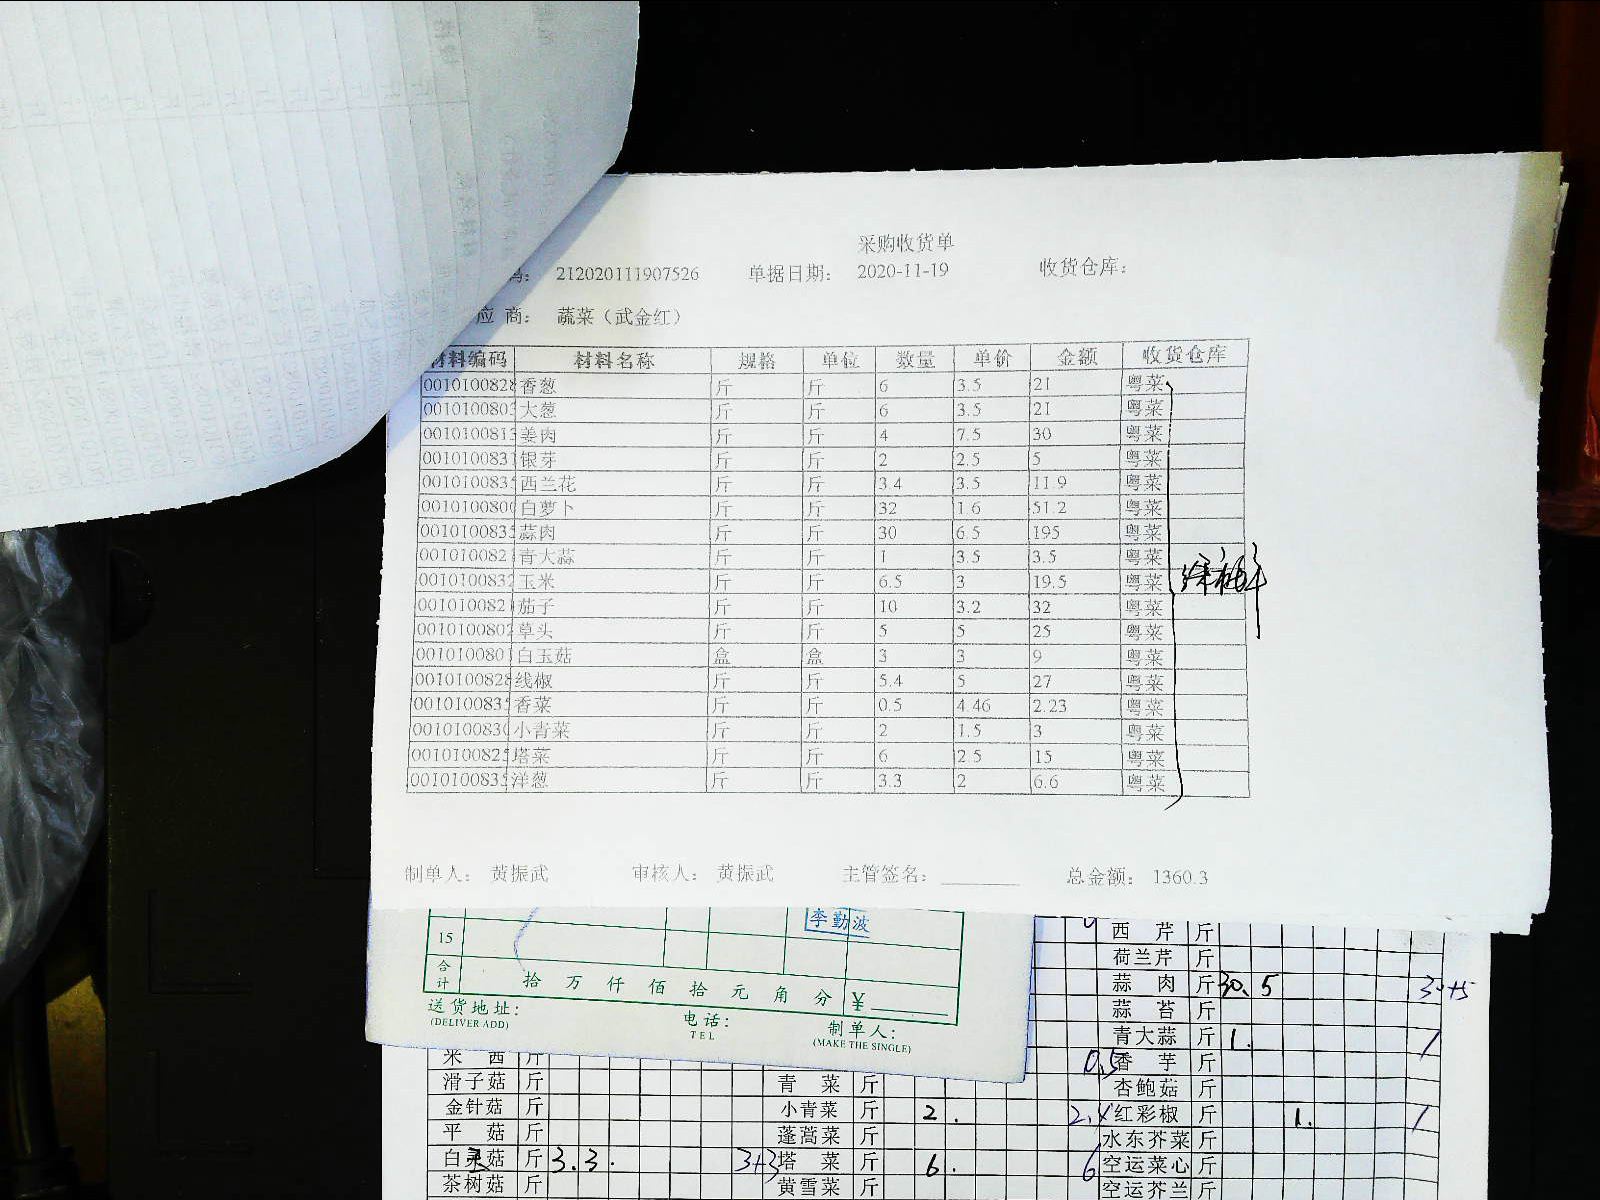 采购收货单
码： 212020111907526 单据日期： 2020-11-19 收货仓库：
应 商： 蔬菜（武金红）
材料编码 材料名称 规格 单位 数量 单价 金额 收货仓库
0010100828 香葱 斤 斤 6 3.5 21 粤菜
001010080 大葱 斤 斤 6 3.5 21 粤菜
001010081 姜肉 斤 斤 4 7.5 30 粤菜
001010083 银芽 斤 斤 2 2.5 5 粤菜
001010083 西兰花 斤 斤 3.4 3.5 11.9 粤菜
001010080 白萝卜 斤 斤 32 1.6 51.2 粤菜
001010083 蒜肉 斤 斤 30 6.5 195 粤菜
001010082 青大蒜 斤 斤 1 3.5 3.5 粤菜
001010083 玉米 斤 斤 6.5 3 19.5 粤菜
001010082 茄子 斤 斤 10 3.2 32 粤菜
001010080 草头 斤 斤 5 5 25 粤菜
001010080 白玉菇 盒 盒 3 3 9 粤菜
001010082 线椒 斤 斤 5.4 5 27 粤菜
001010083 香菜 斤 斤 0.5 4.46 2.23 粤菜
001010083 小青菜 斤 斤 2 1.5 3 粤菜
001010082 塔菜 斤 斤 6 2.5 15 粤菜
001010083 洋葱 斤 斤 3.3 2 6.6 粤菜
制单人： 黄振武 审核人： 黄振武 主管签名： 总金额： 1360.3
李勤波
15
合计 拾 万 仟 佰 拾 元 角 分 ¥
送货地址：
(DELIVER ADD)
电话：
TEL
制单人：
(MAKE THE SINGLE)
西 芹 斤
荷兰芹 斤
蒜 肉 斤 30.5 30+5
蒜 苔 斤
青大蒜 斤 1.
米 西 斤 0.5 香 芋 斤
滑子菇 斤 青 菜 斤 杏鲍菇 斤
金针菇 斤 小青菜 斤 2. 红彩椒 斤 1.
平 菇 斤 蓬蒿菜 斤 水东芥菜 斤
白 菇 斤 3.3. 3+3 塔 菜 斤 6. 6 空运菜心 斤
茶树菇 斤 黄雪菜 斤 空运芥兰 斤